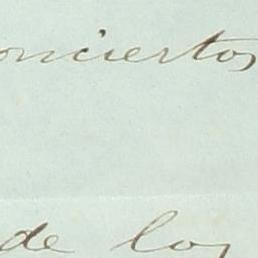 onciertos
de los